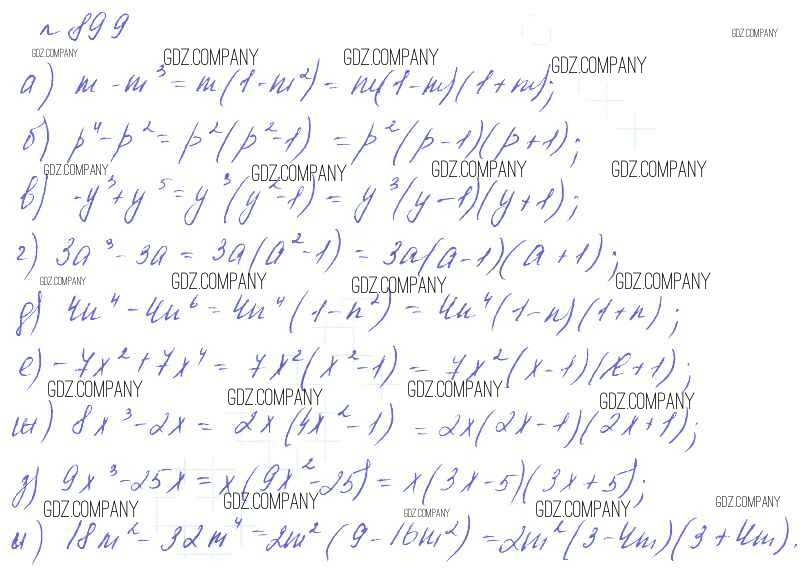 № 899
GDZ.COMPANY
GDZ.COMPANY GDZ.COMPANY GDZ.COMPANY GDZ.COMPANY
а) m - m³ = m(1-m²) = m(1-m)(1+m);
б) p⁴ - p² = p²(p²-1) = p²(p-1)(p+1);
GDZ.COMPANY GDZ.COMPANY GDZ.COMPANY GDZ.COMPANY
в) -y³ + y⁵ = y³(y²-1) = y³(y-1)(y+1);
г) 3a³ - 3a = 3a(a²-1) = 3a(a-1)(a+1);
GDZ.COMPANY GDZ.COMPANY GDZ.COMPANY GDZ.COMPANY
д) 4n⁴ - 4n⁶ = 4n⁴(1-n²) = 4n⁴(1-n)(1+n);
е) -7x² + 7x⁴ = 7x²(x²-1) = 7x²(x-1)(x+1);
GDZ.COMPANY GDZ.COMPANY GDZ.COMPANY GDZ.COMPANY
ж) 8x³ - 2x = 2x(4x²-1) = 2x(2x-1)(2x+1);
з) 9x³ - 25x = x(9x²-25) = x(3x-5)(3x+5);
GDZ.COMPANY GDZ.COMPANY GDZ.COMPANY GDZ.COMPANY GDZ.COMPANY
и) 18m² - 32m⁴ = 2m²(9-16m²) = 2m²(3-4m)(3+4m).